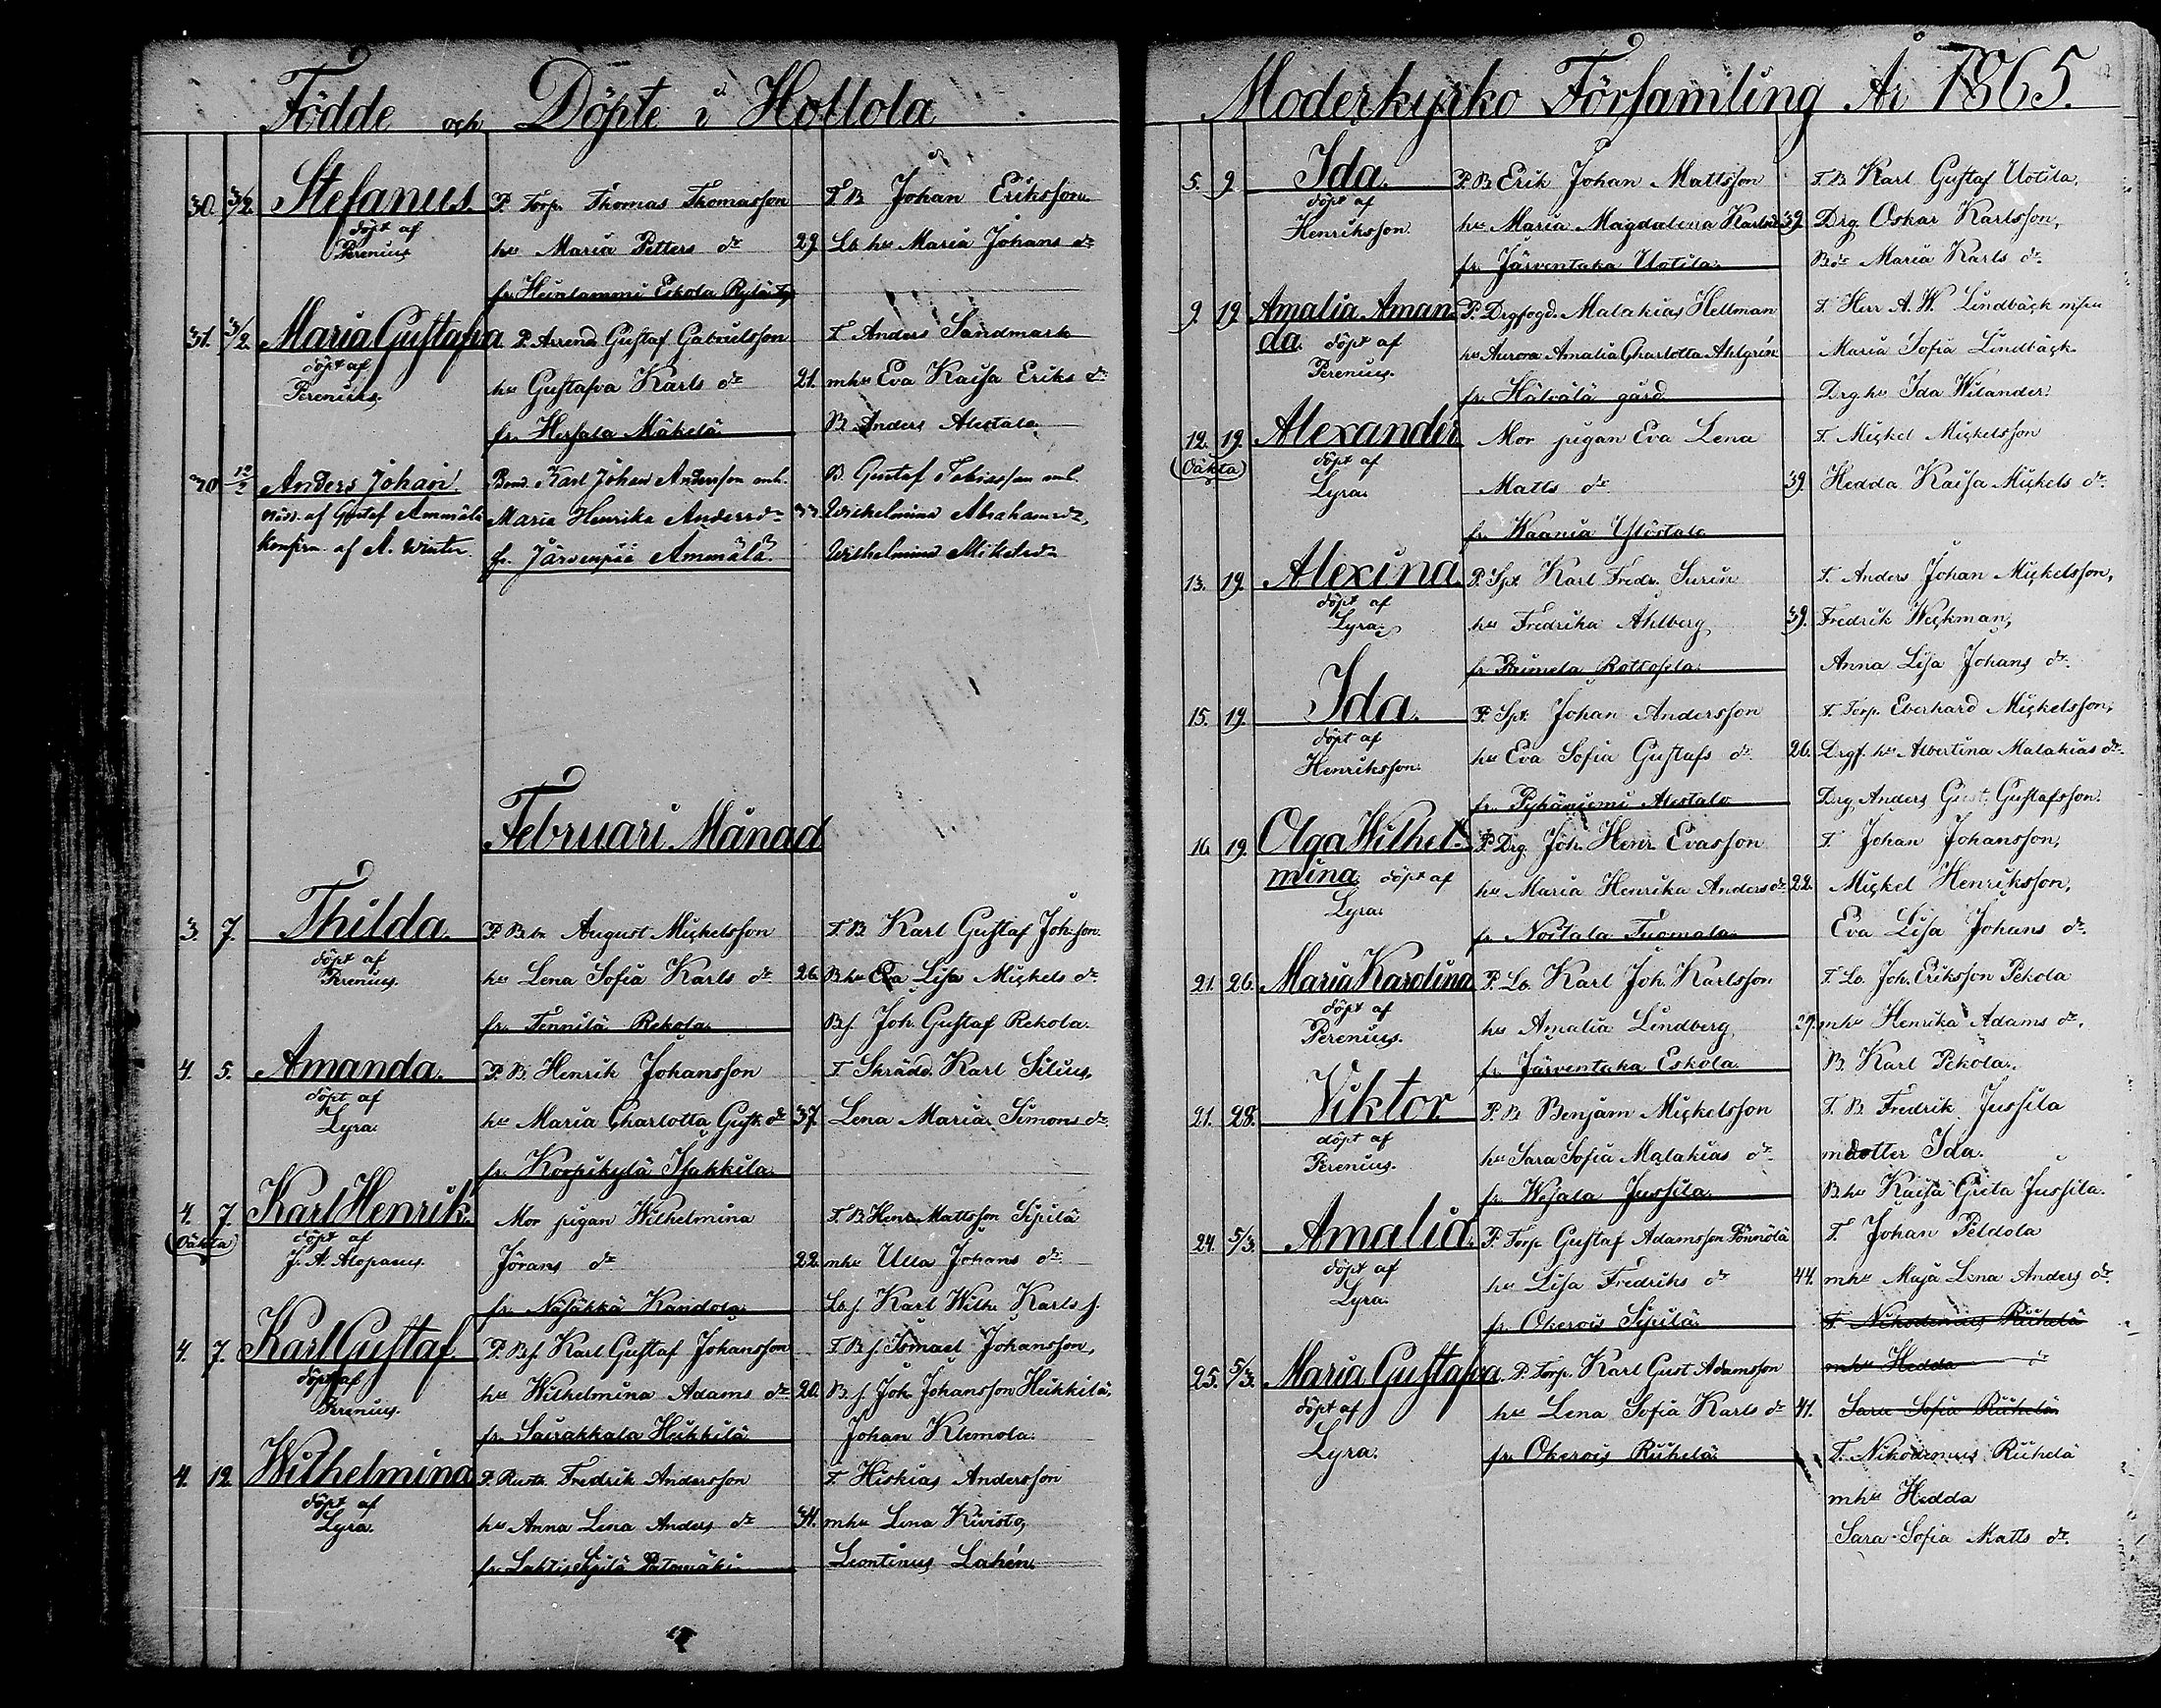 Födde och Döpte i Hollola
30. 3/2. Stefanus. P. Torp. Thomas Thomasson T. B Johan Eriksson
döpt af
Perenius hu Maria Petters dr 29. Lb hu Maria Johans dr
fr. Heinlammi Eskola
31. 3/2. Maria Gustafva P. Arrend. Gustaf Gabrielsson T Anders Sandmark
döpt af
Perenius. hu Gustafva Karls dr 21. mhu Eva Kaisa Eriks dr
fr. Hersala Mäkelä B Anders Alestalo
30 12/2 Anders Johan Bond. Karl Johan Andersson mh. B. Gustaf Tobiasson mh.
nödd. af Gustaf Ammälä Maria Henrika Andersdr 33 Wilhelmina Abrahamsdr,
konfirm. af A. Winter fr. Järvenpää Ammälä Wilhelmina Mikelsdr
Februari Månad
3. 7. Thilda. P. Bbr August Mickelsson T. B. Karl Gustaf Joh.son.
döpt af
Perenius. hu Lena Sofia Karls dr 26. Bhu Eva Lisa Mickels dr
fr. Tennilä Rekola. Bs. Joh. Gustaf Rekola.
4. 5. Amanda. P. B. Henrik Johansson T Skrädd. Karl Silius,
döpt af
Lyra. hu Maria Charlotta Gust. dr 37. Lena Maria Simons dr.
fr. Korpikylä Isakkila.
4. 7. Karl Henrik. Mor pigan Wilhelmina T. B. Henr. Mattsson Sipilä
(Oäkta) döpt af
J. A. Alopaeus. Jörans dr 22. mhu Ulla Johans dr
fr. Nasakka Kandola. Lb s. Karl Wilh. Karls s.
4. 7. Karl Gustaf. P. Bs. Karl Gustaf Johansson T. Bs. Ismael Johansson,
döpt af
Perenius. hu Wilhelmina Adams dr 20. Bs. Joh. Johansson Heikkilä,
fr. Sairakkala Heikkilä Johan Klemola.
4. 12. Wilhelmina P. Fredrik Andersson T Hiskias Andersson
döpt af
Lyra. hu Anna Lena Anders dr 34. mhu Lena Kivistö,
fr. Lahtis Sipilä Patomäki Leontinus Lahén
Moderkyrko Församling År 1865.
5. 9 Ida. P. B Erik Johan Mattsson T. B Karl Gustaf Uotila.
döpt af
Henriksson. hu Maria Magdalena Karls dr 39. Drg. Oskar Karlsson,
fr. Järventaka Uotila. Bdr Maria Karls dr.
9. 19. Amalia Aman- P. Drgfogd. Malakias Hellman T Herr A. W. Lindbäck
da. döpt af
Perenius. hu Aurora Amalia Charlotta Ahlgrén Maria Sofia Lindbäck.
fr. Hälvälä gård Drghu Ida Wilander.
12. 19. Alexander Mor pigan Eva Lena T. Mickel Mickelsson
(Oäkta) döpt af
Lyra. Matts dr 39. Hedda Kaisa Mickels dr.
fr. Waania Ylöstalo
13. 19. Alexina. P. Spt. Karl Fredr. Surin T. Anders Johan Mickelsson,
döpt af
Lyra. hu Fredrika Ahlberg 39. Fredrik Weckman,
fr. Paimela Rottosela. Anna Lisa Johans dr.
15. 19. Ida. P. Spt. Johan Andersson T. Torp. Eberhard Mickelsson,
döpt af
Henriksson. hu Eva Sofia Gustafs dr 26. Drgf. hu Albertina Malakias dr.
fr. Pyhäniemi Alestalo Drg. Anders Gust. Gustafsson.
16. 19. Olga Wilhel- P. Drg. Joh. Henr. Evasson T Johan Johansson,
mina döpt af
Lyra. hu Maria Henrika Anders dr 22. Mickel Henriksson,
fr. Nostala Tuomala. Eva Lisa Johans dr.
21. 26. Maria Karolina P. Lb. Karl Joh. Karlsson T. Lb. Joh. Eriksson Pekola
döpt af
Perenius. hu Amalia Lindberg 27. mhu Henrika Adams dr.
fr. Järventaka Eskola. B. Karl Pekola.
21. 28. Viktor P. B Benjam Mickelsson T. B Fredrik Jussila
döpt af
Perenius. hu Sara Sofia Malakias dr mdotter Ida.
fr. Wesala Jussila. Bhu Kaisa Greta Jussila.
24. 5/3. Amalia. P. Torp Gustaf Adamsson Pönnölä T. Johan Peldola
döpt af
Lyra. hu Lisa Fredriks dr 44. mhu Maja Lena Anders dr.
fr. Okerois Sipilä. T. Nikodemus Riihelä
25. 5/3. Maria Gustafva. P. Torp. Karl Gust Adamsson mhu Hedda dr
döpt af hu Lena Sofia Karls dr 41. Sara Sofia Riihelä
Lyra. fr. Okerois Riihelä. T. Nikodemus Riihelä
mhu Hedda
Sara Sofia Matts dr.